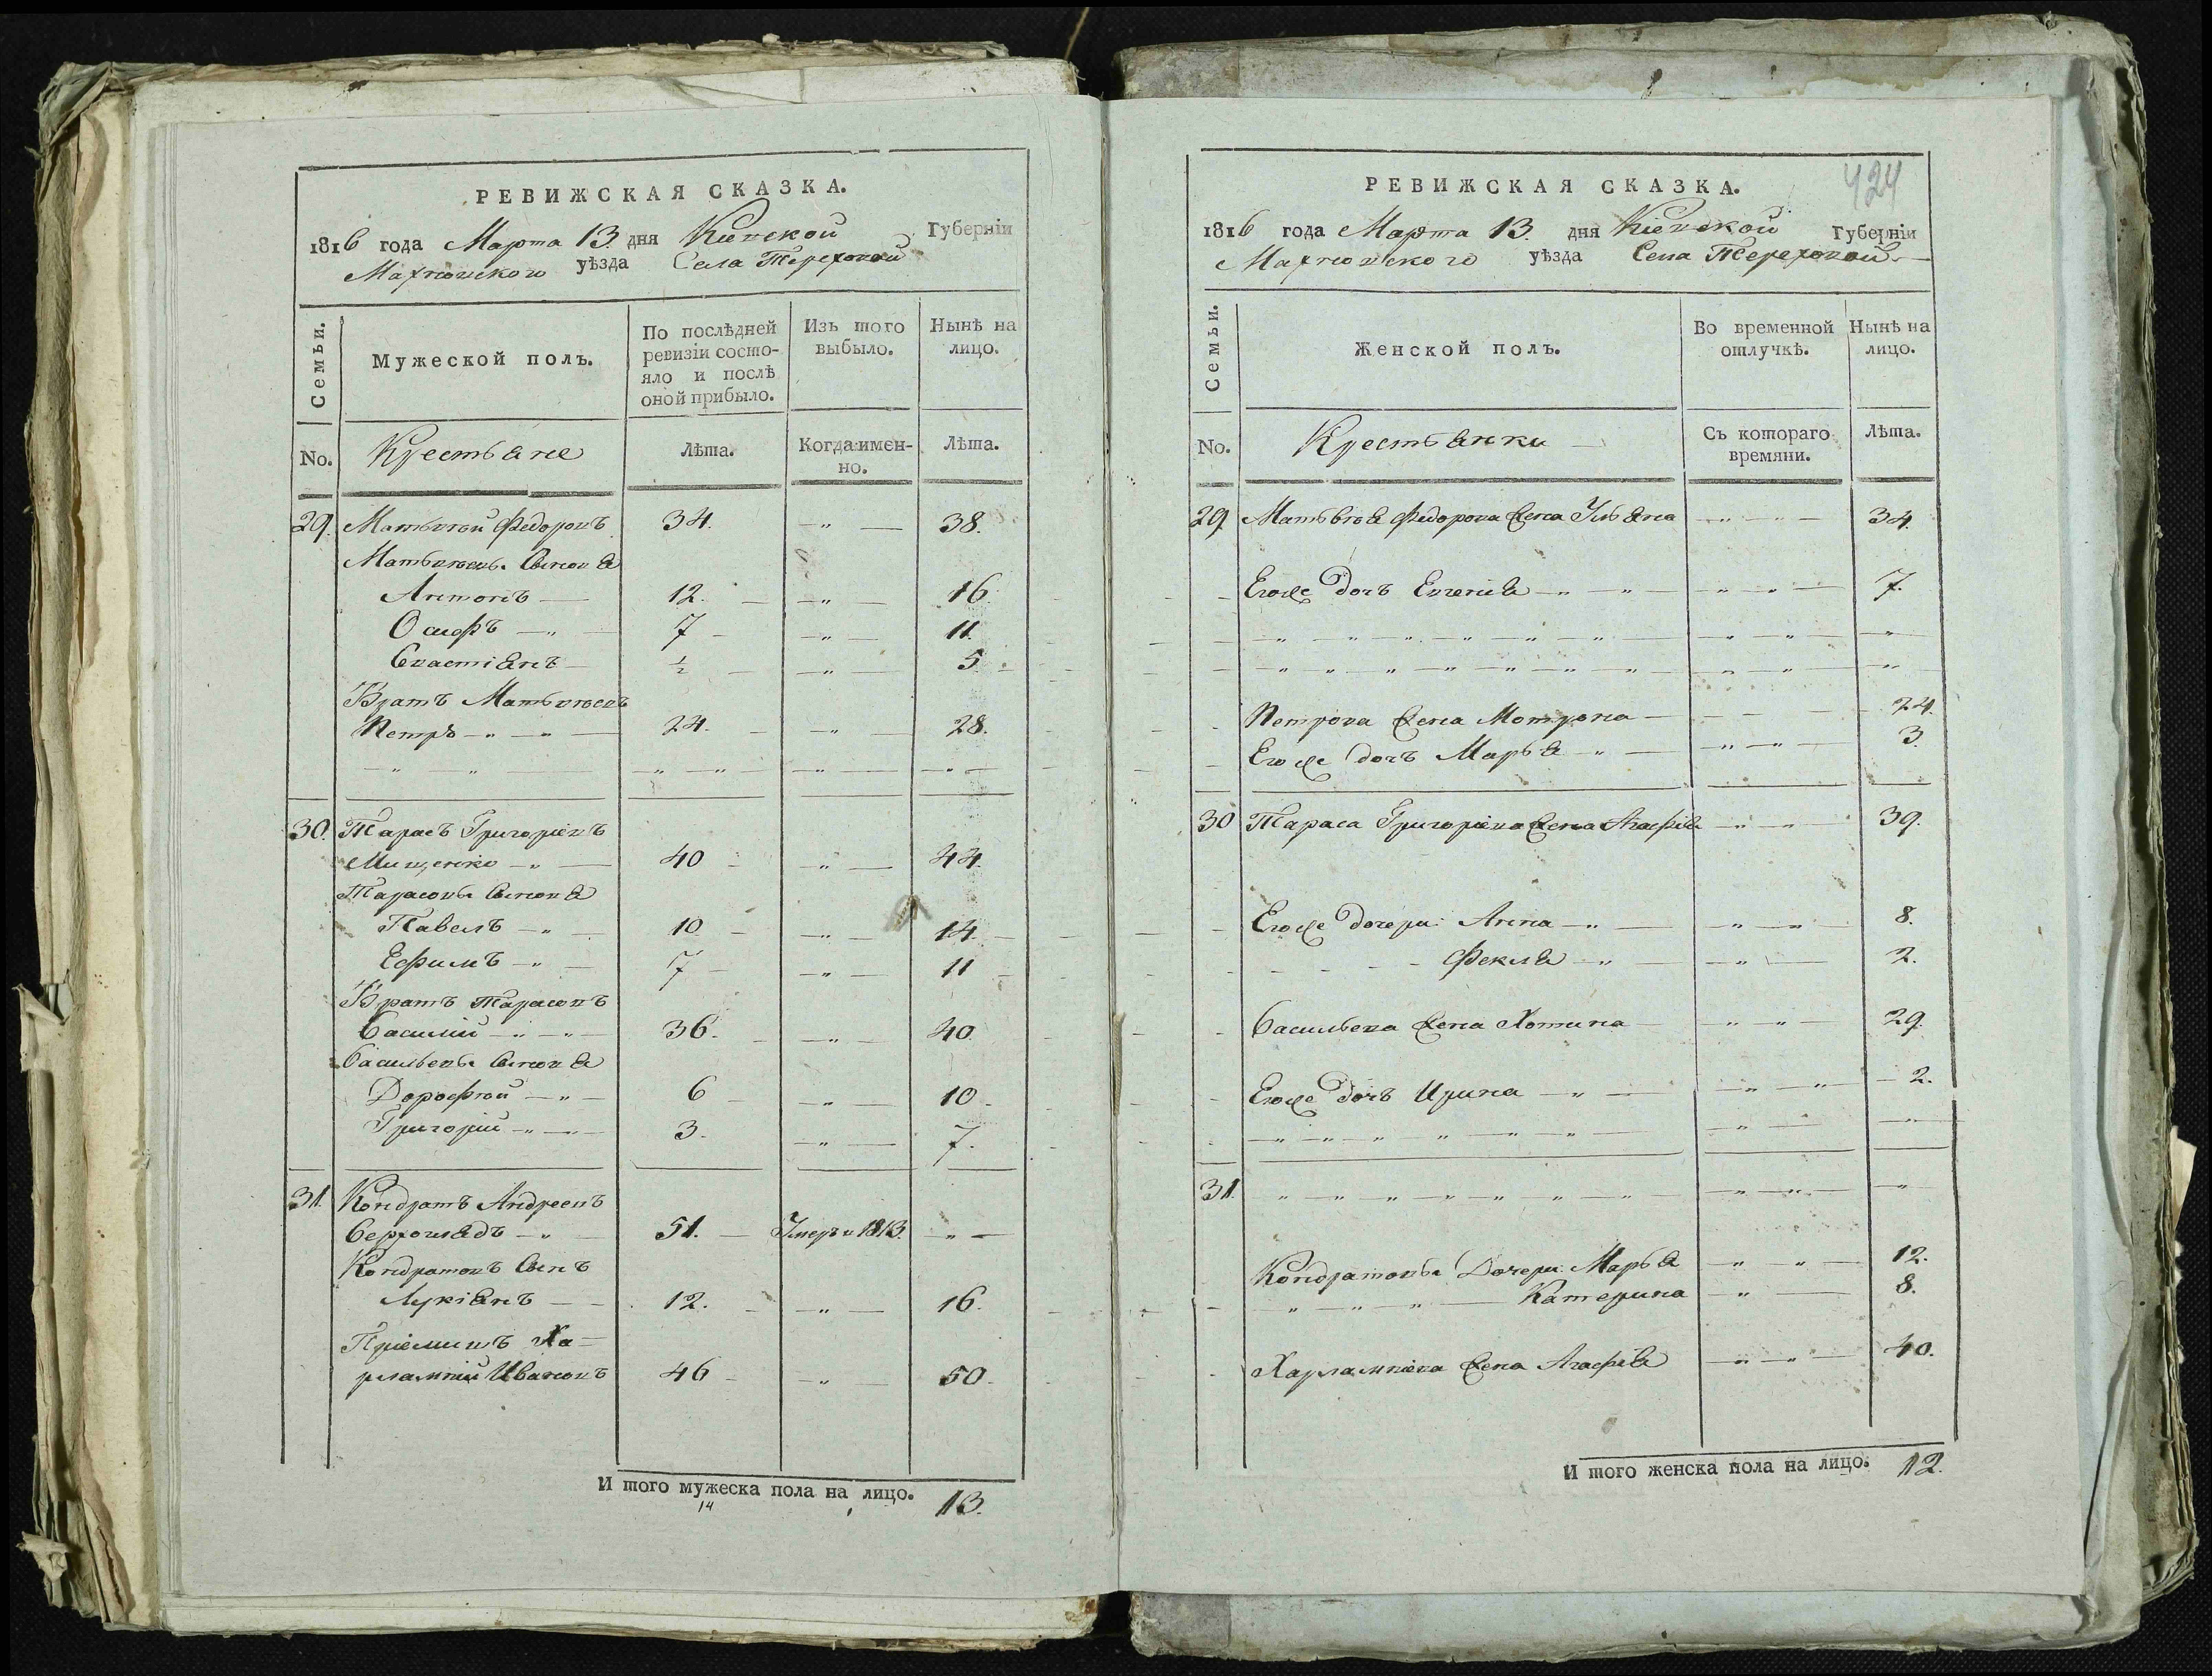 РЕВИЖСКАЯ СКАЗКА.
1816 года Марта 13. дня Киевской Губерніи
Махновского уѣзда Села Тереховой
Семьи.
Мужеской полъ.
По послѣдней
ревизіи состо-
яло и послѣ
оной прибыло.
Изъ того
выбыло.
Нынѣ на
лицо.
No.
Крестьяне
Лѣта.
Когда имен-
но.
Лѣта.
29. Матьвѣй Федоровъ 34. —„— 38.
Матьвѣевы Сыновя
Антонъ — 12. —„— 16.
Осифъ —„— 7 —„— 11.
Севастіянъ — ½ —„— 5
Братъ Матьвѣевъ
Петръ —„—„— 24. —„— 28.
—„—„— —„—„— —„— —„—
30. Тарасъ Григоріевъ
Мищенко —„— 40 —„— 44.
Тарасовы Сыновя
Павелъ —„— 10 —„— 14.
Ефимъ —„— 7 —„— 11
Братъ Тарасовъ
Василий —„—„— 36. —„— 40.
Васильевы Сыновя
Дорофѣй —„— 6 —„— 10.
Григорій —„— 3. —„— 7.
31. Кондратъ Андреевъ
51. — Умеръ в 1813. —„—
Кондратовъ Сынъ
Лукіянъ — 12. —„— 16.
Пріемишъ Ха-
рлампій Ивановъ 46 —„— 50.
И того мужеска пола на лицо. 13.
14
424
РЕВИЖСКАЯ СКАЗКА.
1816 года Марта 13. дня Кіевской Губерніи
Махновского уѣзда Села Тереховой
Семьи.
Женской полъ.
Во временной
отлучкѣ.
Нынѣ на
лицо.
No.
Крестьянки —
Съ котораго
времяни.
Лѣта.
29. Матьвѣя Федорова Жена Ульяна —„—„— 34.
Егоже Дочъ Евгенія —„—„— —„—„— 7.
—„—„—„—„—„—„— —„—„— —„—
—„—„—„—„—„—„—„— —„—„— —„—
Петрова Жена Мотрона — — — 24.
Егоже дочъ Марья —„— „—„— 3.
30 Тараса Григоріева Жена Агафія —„—„— 39.
Егоже Дочери: Анна —„— —„—„— 8.
Фекля —„— —„— 2.
Васильева Жена Хотина — —„—„— 29.
Егоже Дочъ Ирина —„— —„—„— 2.
—„—„—„—„—„—„— —„— —„—
31. „—„—„—„—„—„—„ —„—„— „
Кондратовы Дочери: Марья —„—„— 12.
„—„—„— Катерина —„— 8.
Харлампіева Жена Агафія —„—„— 40.
И того женска пола на лицо. 12.